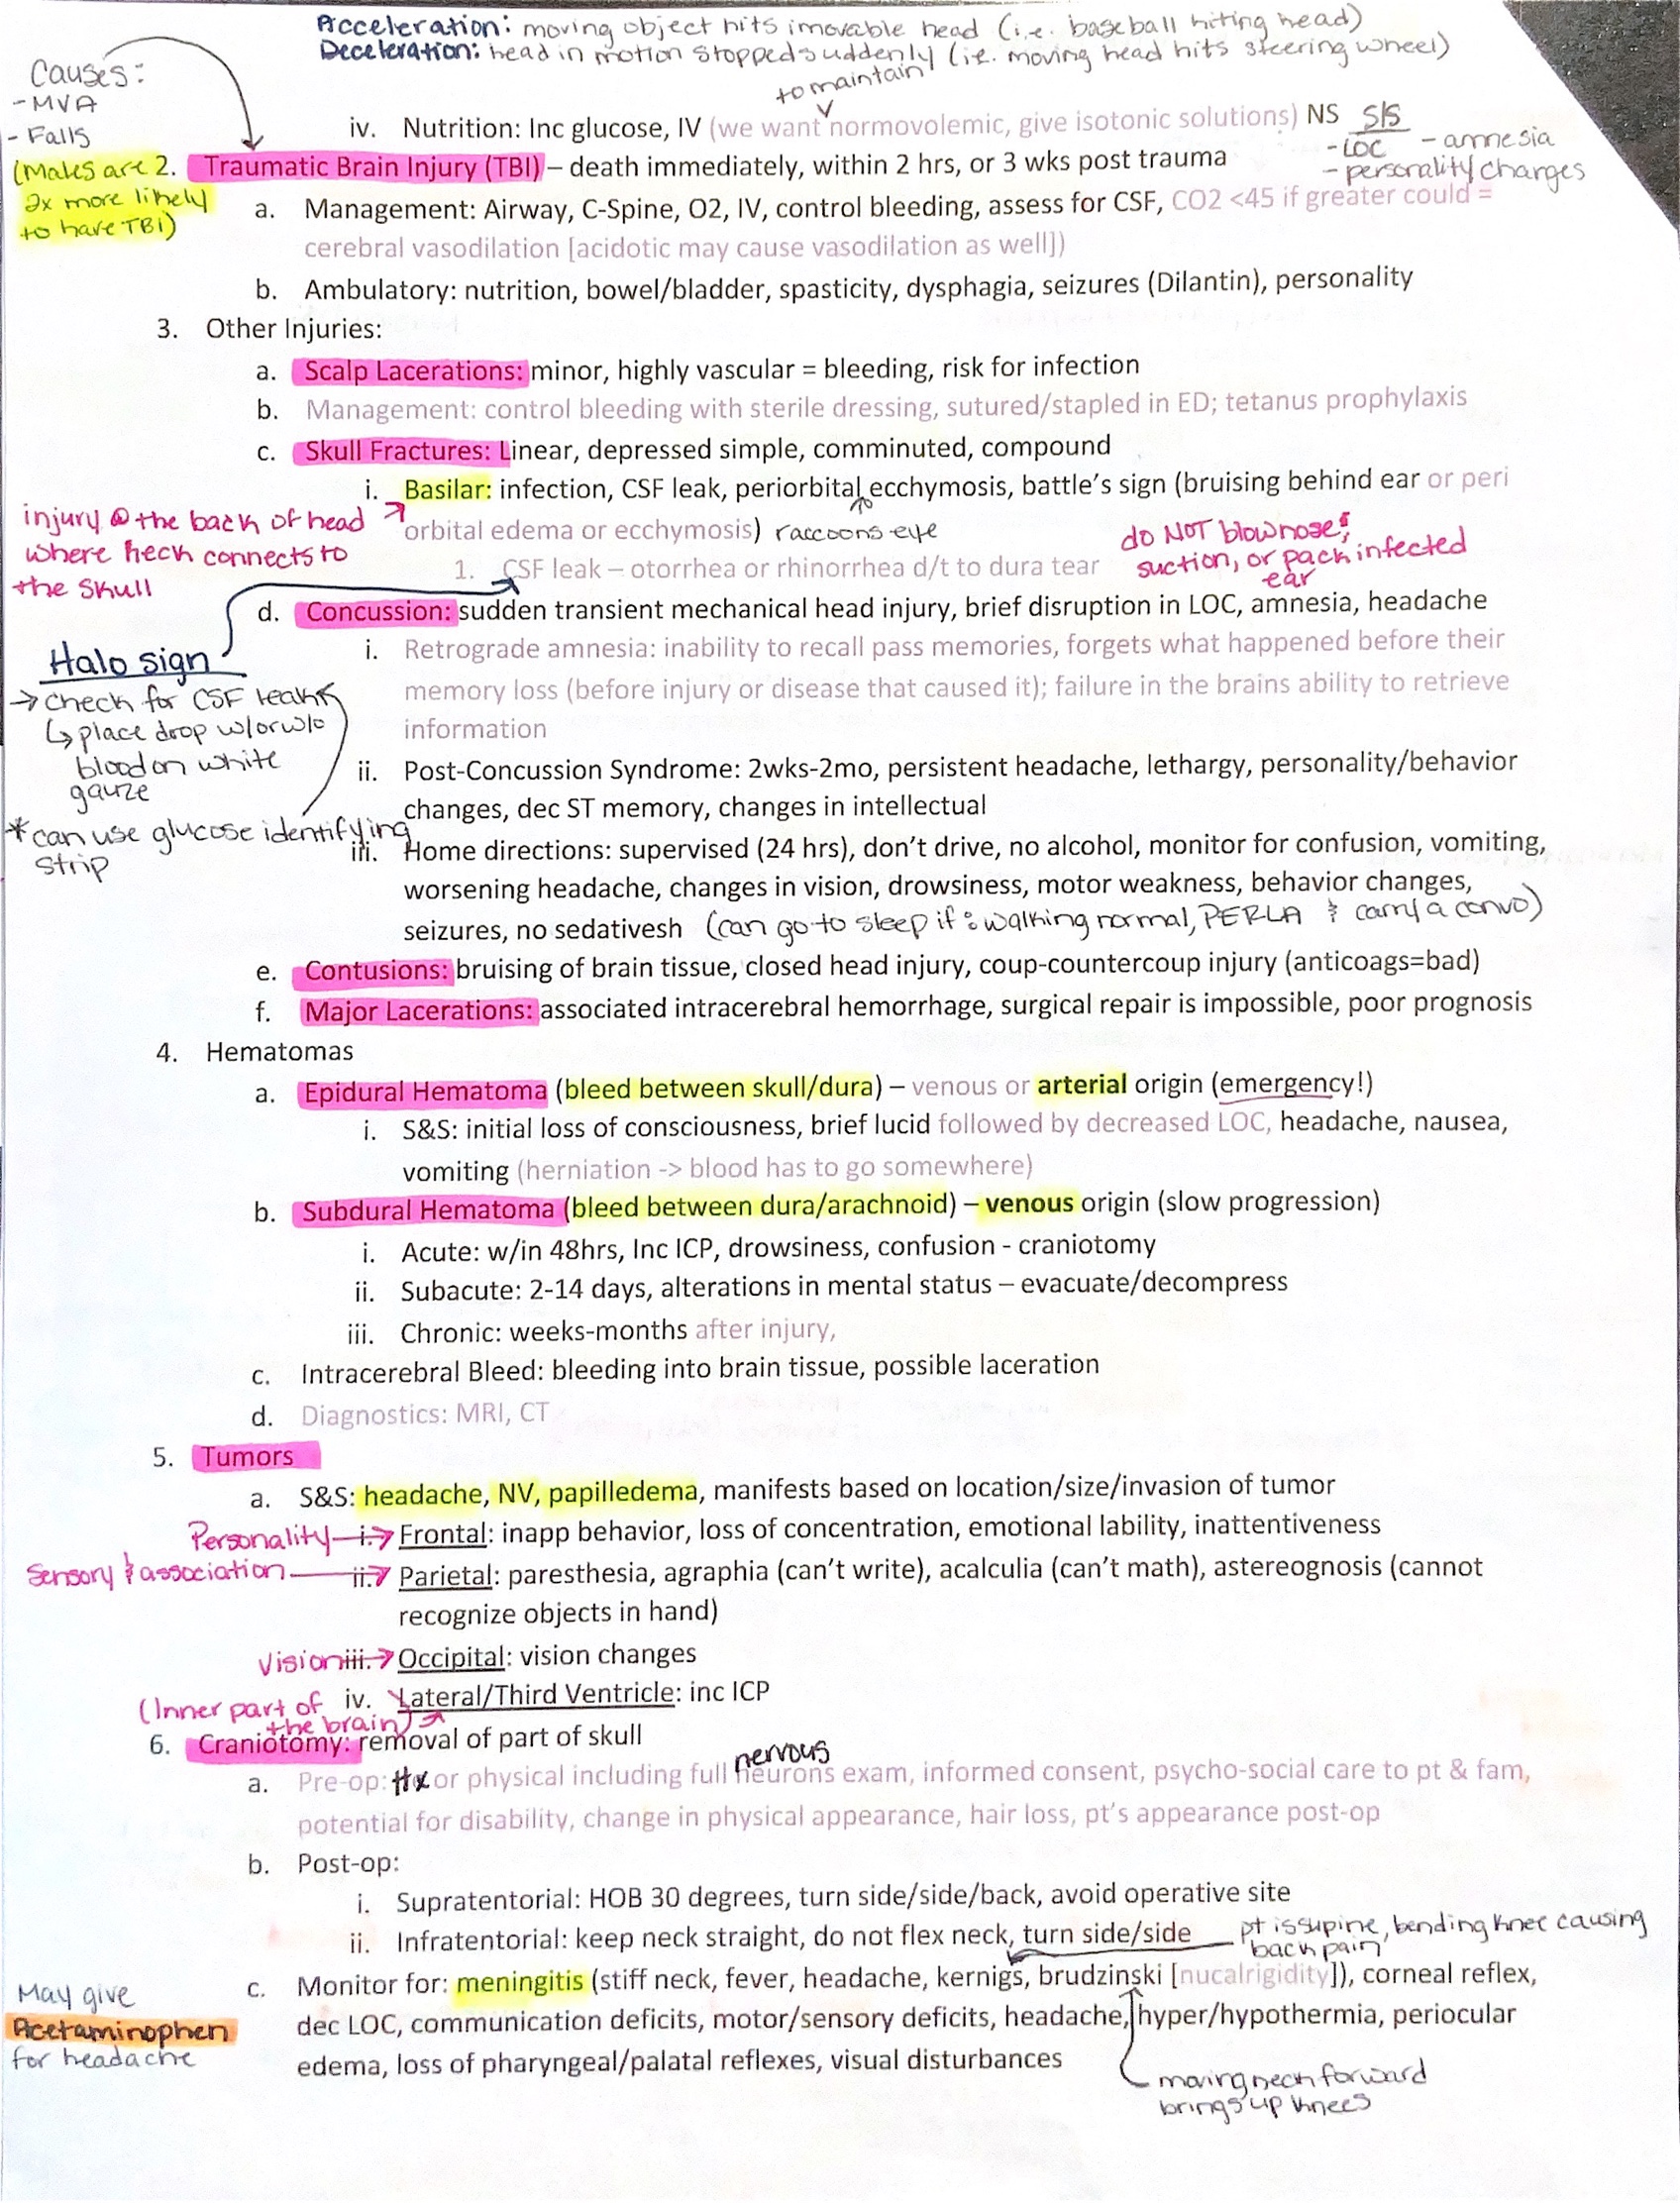 Acceleration: moving object hits imovable head (i.e. baseball hiting head)
Deceleration: head in motion stopped suddenly (i.e. moving head hits steering wheel)
Causes:
- MVA
- Falls
(Males are
2x more likely
to have TBI)
to maintain
iv. Nutrition: Inc glucose, IV (we want normovolemic, give isotonic solutions) NS
S/S
- LOC - amnesia
- personality changes
2. Traumatic Brain Injury (TBI) – death immediately, within 2 hrs, or 3 wks post trauma
a. Management: Airway, C-Spine, O2, IV, control bleeding, assess for CSF, CO2 <45 if greater could =
cerebral vasodilation [acidotic may cause vasodilation as well])
b. Ambulatory: nutrition, bowel/bladder, spasticity, dysphagia, seizures (Dilantin), personality
3. Other Injuries:
a. Scalp Lacerations: minor, highly vascular = bleeding, risk for infection
b. Management: control bleeding with sterile dressing, sutured/stapled in ED; tetanus prophylaxis
c. Skull Fractures: Linear, depressed simple, comminuted, compound
i. Basilar: infection, CSF leak, periorbital ecchymosis, battle's sign (bruising behind ear or peri
orbital edema or ecchymosis) raccoons eye
injury @ the back of head
where neck connects to
the skull
1. CSF leak – otorrhea or rhinorrhea d/t to dura tear
do NOT blow nose,
suction, or pack infected
ear
d. Concussion: sudden transient mechanical head injury, brief disruption in LOC, amnesia, headache
i. Retrograde amnesia: inability to recall pass memories, forgets what happened before their
memory loss (before injury or disease that caused it); failure in the brains ability to retrieve
information
Halo sign
→ check for CSF leak
↳ place drop w/or w/o
blood on white
gauze
* can use glucose identifying
strip
ii. Post-Concussion Syndrome: 2wks-2mo, persistent headache, lethargy, personality/behavior
changes, dec ST memory, changes in intellectual
iii. Home directions: supervised (24 hrs), don't drive, no alcohol, monitor for confusion, vomiting,
worsening headache, changes in vision, drowsiness, motor weakness, behavior changes,
seizures, no sedativesh (can go to sleep if: walking normal, PERLA & carry a convo)
e. Contusions: bruising of brain tissue, closed head injury, coup-countercoup injury (anticoags=bad)
f. Major Lacerations: associated intracerebral hemorrhage, surgical repair is impossible, poor prognosis
4. Hematomas
a. Epidural Hematoma (bleed between skull/dura) – venous or arterial origin (emergency!)
i. S&S: initial loss of consciousness, brief lucid followed by decreased LOC, headache, nausea,
vomiting (herniation -> blood has to go somewhere)
b. Subdural Hematoma (bleed between dura/arachnoid) – venous origin (slow progression)
i. Acute: w/in 48hrs, Inc ICP, drowsiness, confusion - craniotomy
ii. Subacute: 2-14 days, alterations in mental status – evacuate/decompress
iii. Chronic: weeks-months after injury,
c. Intracerebral Bleed: bleeding into brain tissue, possible laceration
d. Diagnostics: MRI, CT
5. Tumors
a. S&S: headache, NV, papilledema, manifests based on location/size/invasion of tumor
Personality → i. Frontal: inapp behavior, loss of concentration, emotional lability, inattentiveness
Sensory & association → ii. Parietal: paresthesia, agraphia (can't write), acalculia (can't math), astereognosis (cannot
recognize objects in hand)
Vision → iii. Occipital: vision changes
(Inner part of
the brain)
iv. Lateral/Third Ventricle: inc ICP
6. Craniotomy: removal of part of skull
nervous
a. Pre-op: Hx or physical including full neurons exam, informed consent, psycho-social care to pt & fam,
potential for disability, change in physical appearance, hair loss, pt's appearance post-op
b. Post-op:
i. Supratentorial: HOB 30 degrees, turn side/side/back, avoid operative site
ii. Infratentorial: keep neck straight, do not flex neck, turn side/side
pt is supine, bending knee causing
back pain
c. Monitor for: meningitis (stiff neck, fever, headache, kernigs, brudzinski [nucalrigidity]), corneal reflex,
dec LOC, communication deficits, motor/sensory deficits, headache, hyper/hypothermia, periocular
edema, loss of pharyngeal/palatal reflexes, visual disturbances
May give
Acetaminophen
for headache
moving neck forward
brings up knees